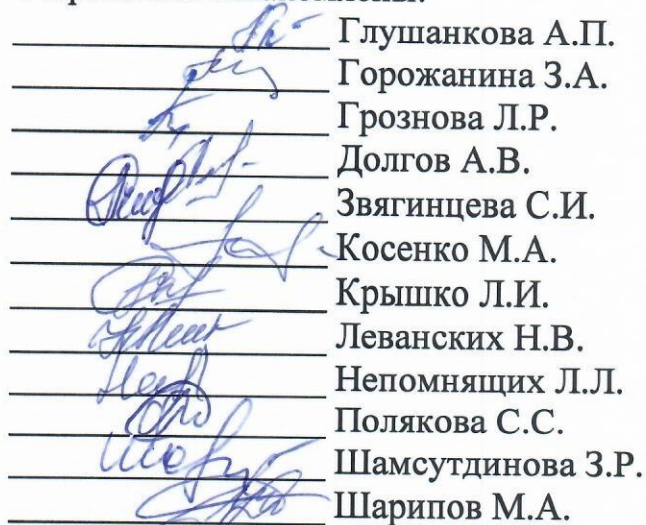 Глушанкова А.П.
Горожанина З.А.
Грознова Л.Р.
Долгов А.В.
Звягинцева С.И.
Косенко М.А.
Крышко Л.И.
Леванских Н.В.
Непомнящих Л.Л.
Полякова С.С.
Шамсутдинова З.Р.
Шарипов М.А.